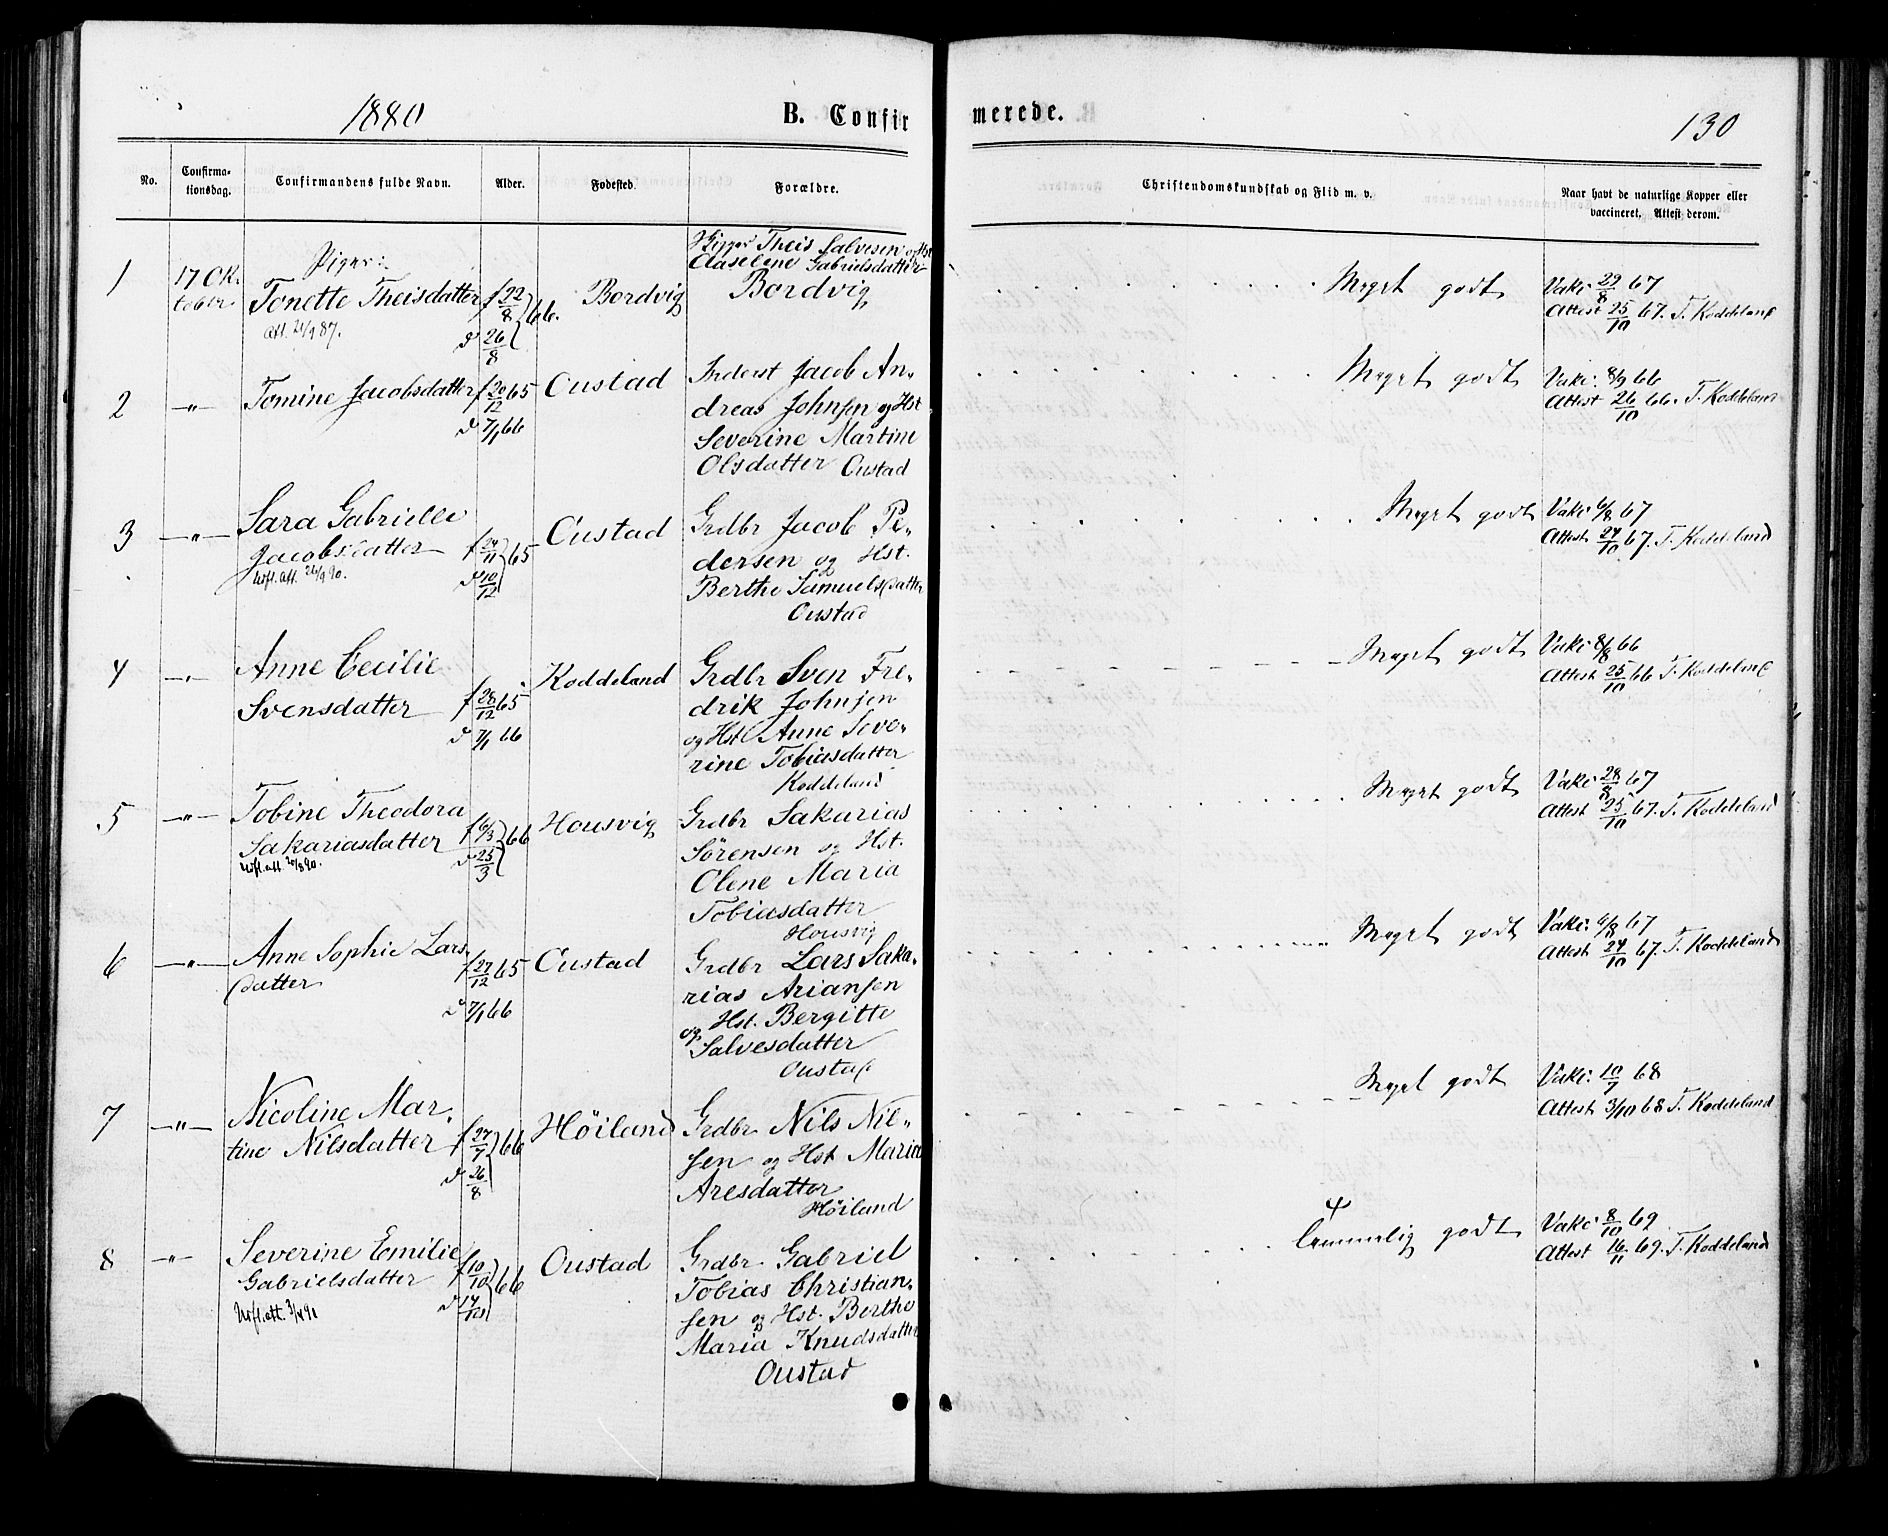 1880
B. Confirmerede.
130
No.
Confirmationsdag.
Confirmandens fulde Navn.
Alder.
Fødested.
Forældre.
Christendomskundskab og Flid m. v.
Naar havt de naturlige Kopper eller vaccineret. Attest derom.
Piger:
1
17 Ok-
tober
Tonette Theisdatter
att. 21/9 87.
f 22/8 66.
d 26/8
Bordvig
Theis Salvesen og Hst
Aaselene Gabrielsdatter
Bordvig
Meget godt
Vakc: 29/8 67
Attest 25/10 67. T. Koddeland
2
-"-
Tomine Jacobsdatter
f 20/12 65
d 7/1 66
Oustad
Inderst Jacob An-
dreas Johnsen og Hst
Severine Martine
Olsdatter Oustad
Meget godt
Vakc: 8/9 66
Attest 26/10 66. T. Koddeland
3
-"-
Sara Gabrielle
Jacobsdatter
Udfl. att. 26/9 90.
f 24/11 65
d 10/12
Oustad
Grdbr Jacob Pe-
dersen og Hst.
Berthe Samuelsdatter
Oustad
Meget godt
Vakc 6/8 67
Attest 24/10 67. T. Koddeland
4
-"-
Anne Cecilie
Svensdatter
f 28/12 65
d 7/1 66
Koddeland
Grdbr Sven Fre-
drik Johnsen
og Hst Anne Seve-
rine Tobiasdatter
Koddeland
Meget godt
Vakc 8/8 66
Attest 25/10 66 T. Koddeland
5
-"-
Tobine Theodora
Sakariasdatter
Udfl. att. 20/8 90.
f 6/3 66
d 25/3
Housvig
Grdbr Sakarias
Sørensen og Hst.
Olene Maria
Tobiasdatter
Housvig
Meget godt
Vakc: 28/8 67
Attest 25/10 67. T. Koddeland
6
-"-
Anne Sophie Lars-
datter
f 27/12 65
d 7/1 66
Oustad
Grdbr Lars Saka-
rias Ariansen
og Hst. Bergitte
Salvesdatter
Oustad
Meget godt
Vakc: 6/8 67
Attest 24/10 67. T. Koddeland
7
-"-
Nicoline Mar-
tine Nilsdatter
f 27/7 66
d 26/8
Høiland
Grdbr Nils Nil-
sen og Hst Maria
Aresdatter
Høiland
Meget godt
Vakc: 10/7 68
Attest 3/10 68 T. Koddeland
8
-"-
Severine Emilie
Gabrielsdatter
Udfl. att. 3/4 91
f 10/10 66
d 14/10
Oustad
Grdbr. Gabriel
Tobias Christian-
sen og Hst. Berthe
Maria Knudsdatter
Oustad
Temmelig godt
Vakc 8/10 69
Attest 16/11 69. T. Koddeland